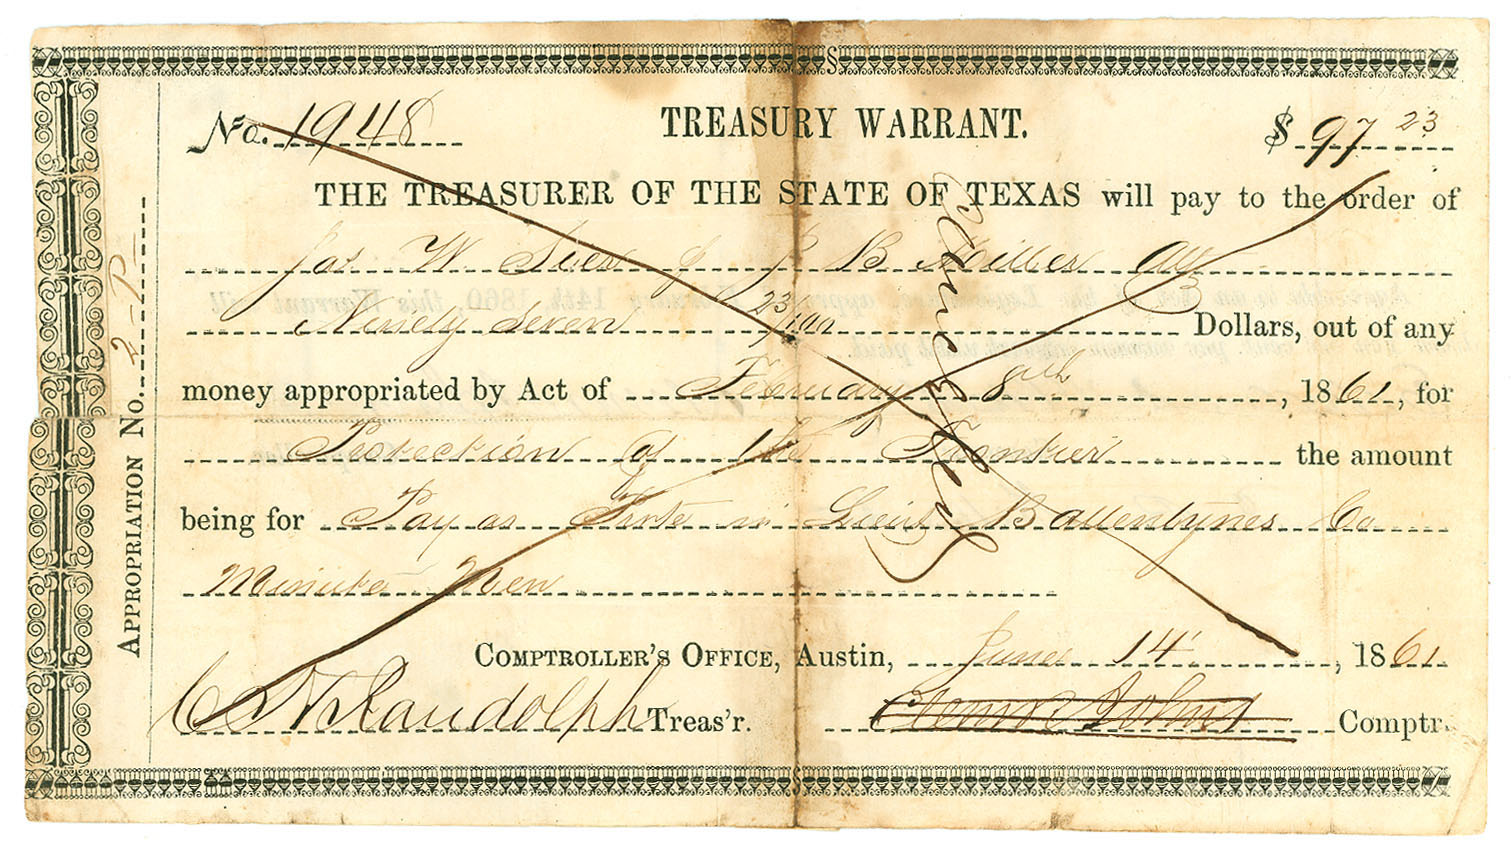 No. 1948 TREASURY WARRANT. $ 97 23
THE TREASURER OF THE STATE OF TEXAS will pay to the order of
Jas W B Miller atty
Ninety Seven 23/100 Dollars, out of any
money appropriated by Act of February 8th, 1861, for
Protection of the Frontier the amount
being for Pay as in Lieut Ballentynes Co
Minute Men
COMPTROLLER'S OFFICE, Austin, June 14 1861
C H Randolph Treas'r. Clem R Johns Comptr.
APPROPRIATION No. 2 - P -
Cancelled